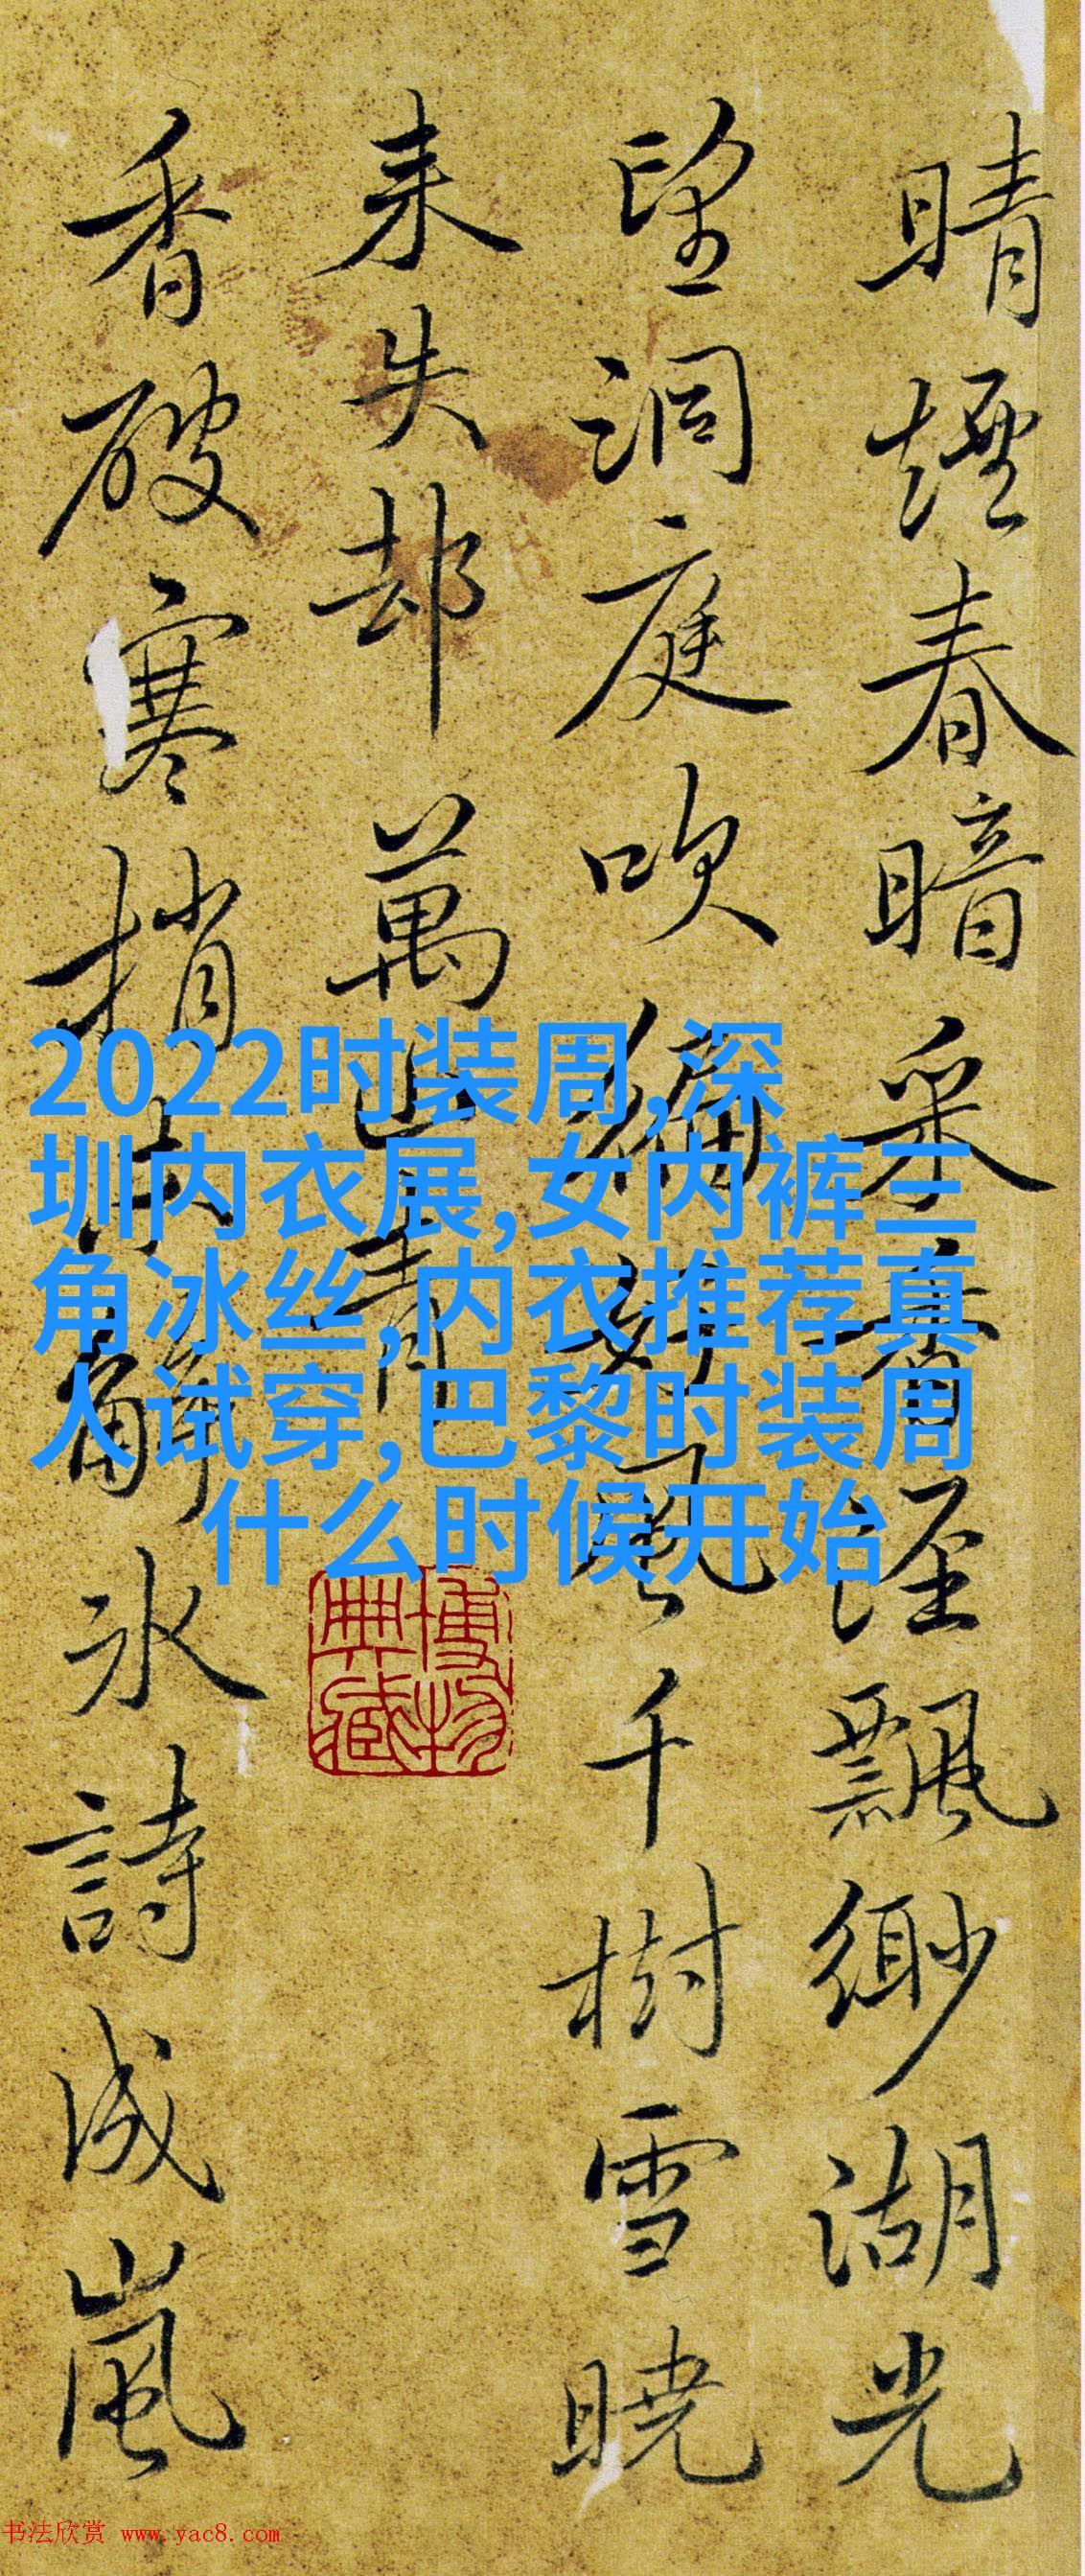 晴煙春暗采香涇飄緲湖光
望洞庭吹徧好風千樹雪曉
来失却萬山青
香破寒梢解冰詩成嵐
2022时装周,深
圳内衣展,女内裤三
角冰丝,内衣推荐真
人试穿,巴黎时装周
什么时候开始
博物
典藏
书法欣赏 www.yac8.com